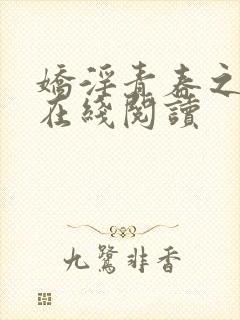 嬌淫青春之
在綫閱讀
九鷺非香